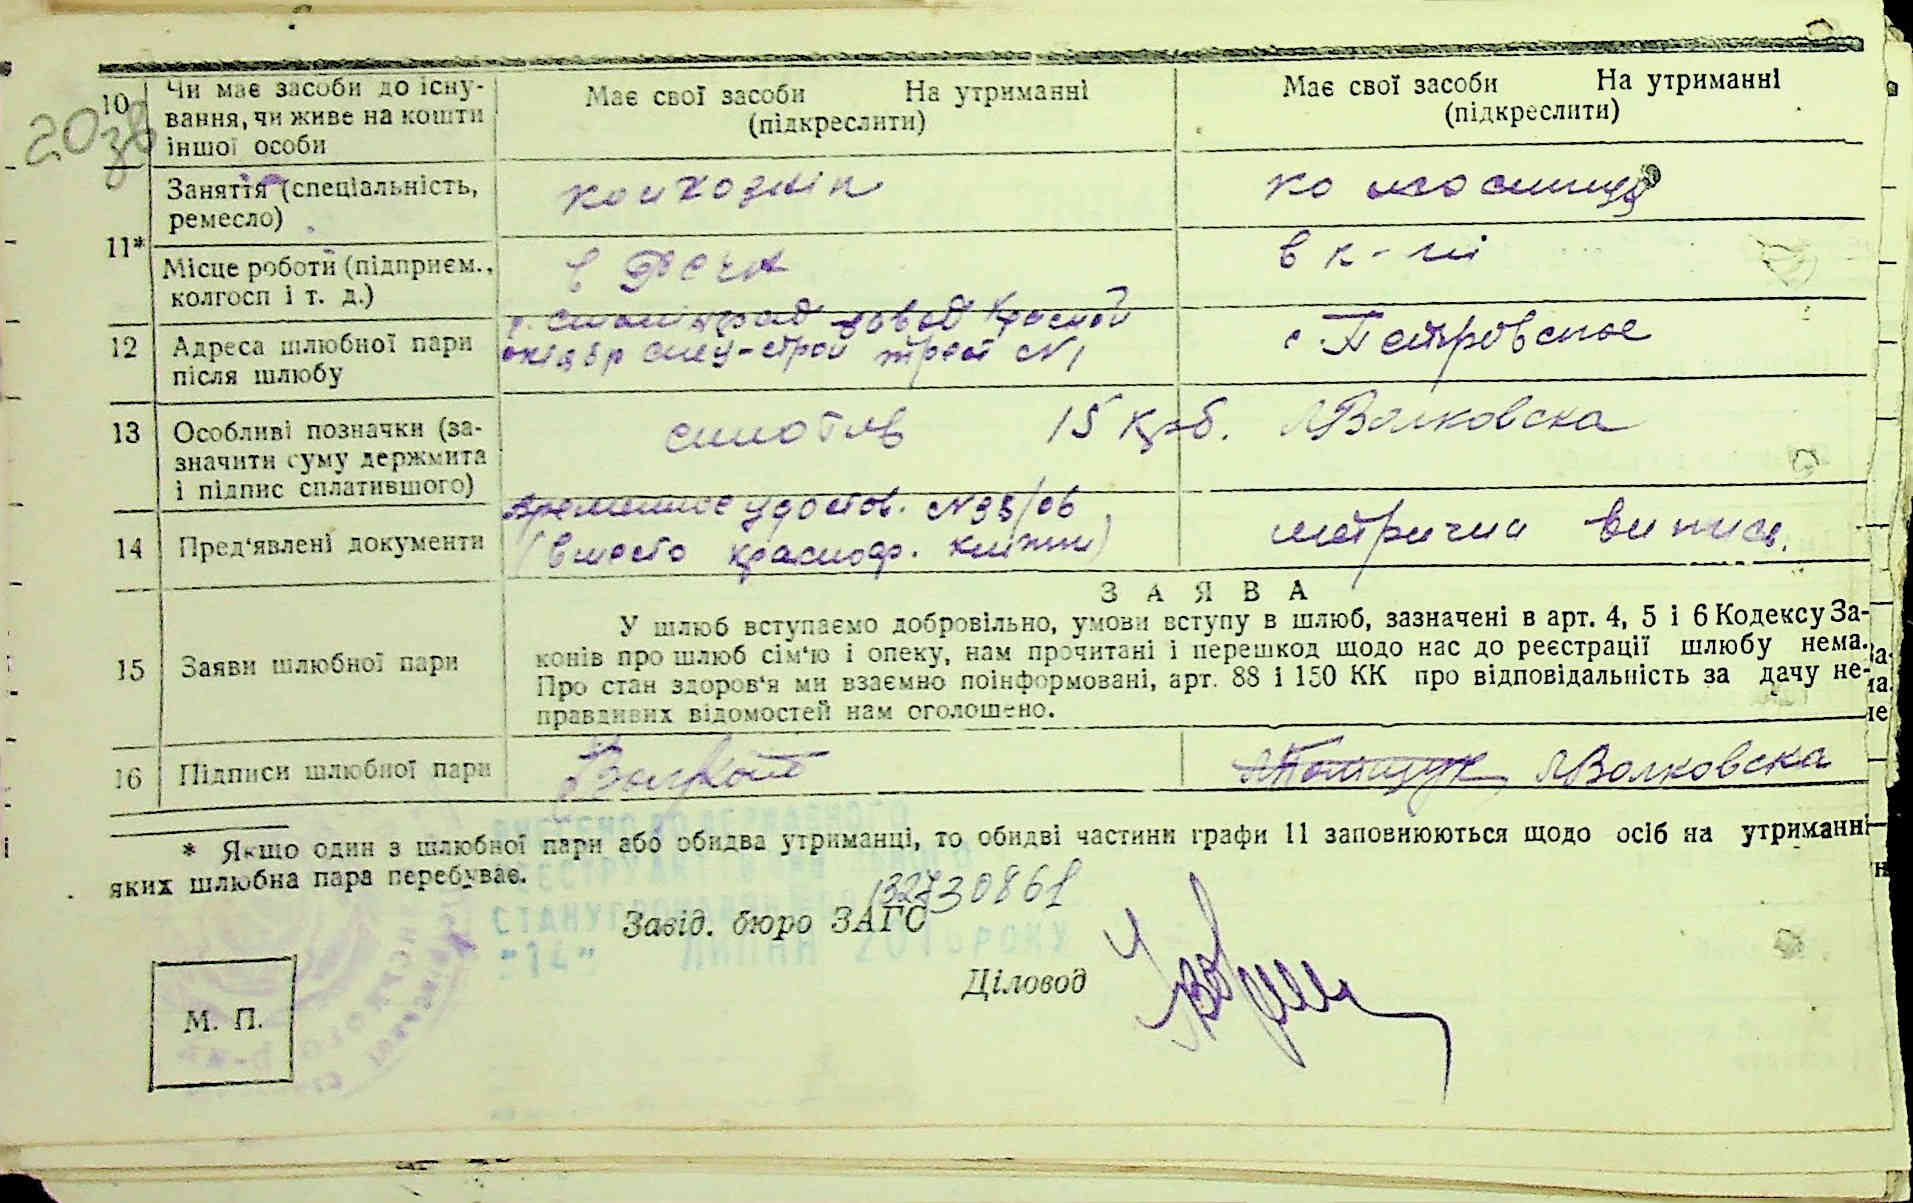 10 Чи має засоби до існу-
вання, чи живе на кошти
іншої особи
Має свої засоби На утриманні
(підкреслити)
Має свої засоби На утриманні
(підкреслити)
11* Заняття (спеціальність,
ремесло)
колхознік
Місце роботи (підприєм.,
колгосп і т. д.)
в РСЧА
в к-пі
12 Адреса шлюбної пари
після шлюбу
г. Сталінград завод Красной
октябр спец-строй трест №1
с. Петровское
13 Особливі позначки (за-
значити суму держмита
і підпис сплатившого)
15 крб. Волковска
14 Пред'явлені документи
временное удостов. №33/06
(вместо красноар. книжки)
метрична випись.
15 Заяви шлюбної пари
ЗАЯВА
У шлюб вступаємо добровільно, умови вступу в шлюб, зазначені в арт. 4, 5 і 6 Кодексу За-
конів про шлюб сім'ю і опеку, нам прочитані і перешкод щодо нас до реєстрації шлюбу нема.
Про стан здоров'я ми взаємно поінформовані, арт. 88 і 150 КК про відповідальність за дачу не-
правдивих відомостей нам оголошено.
16 Підписи шлюбної пари
Поліщук Волковска
* Якщо один з шлюбної пари або обидва утриманці, то обидві частини графи 11 заповнюються щодо осіб на утриманні
яких шлюбна пара перебуває.
Завід. бюро ЗАГС
Діловод
М. П.